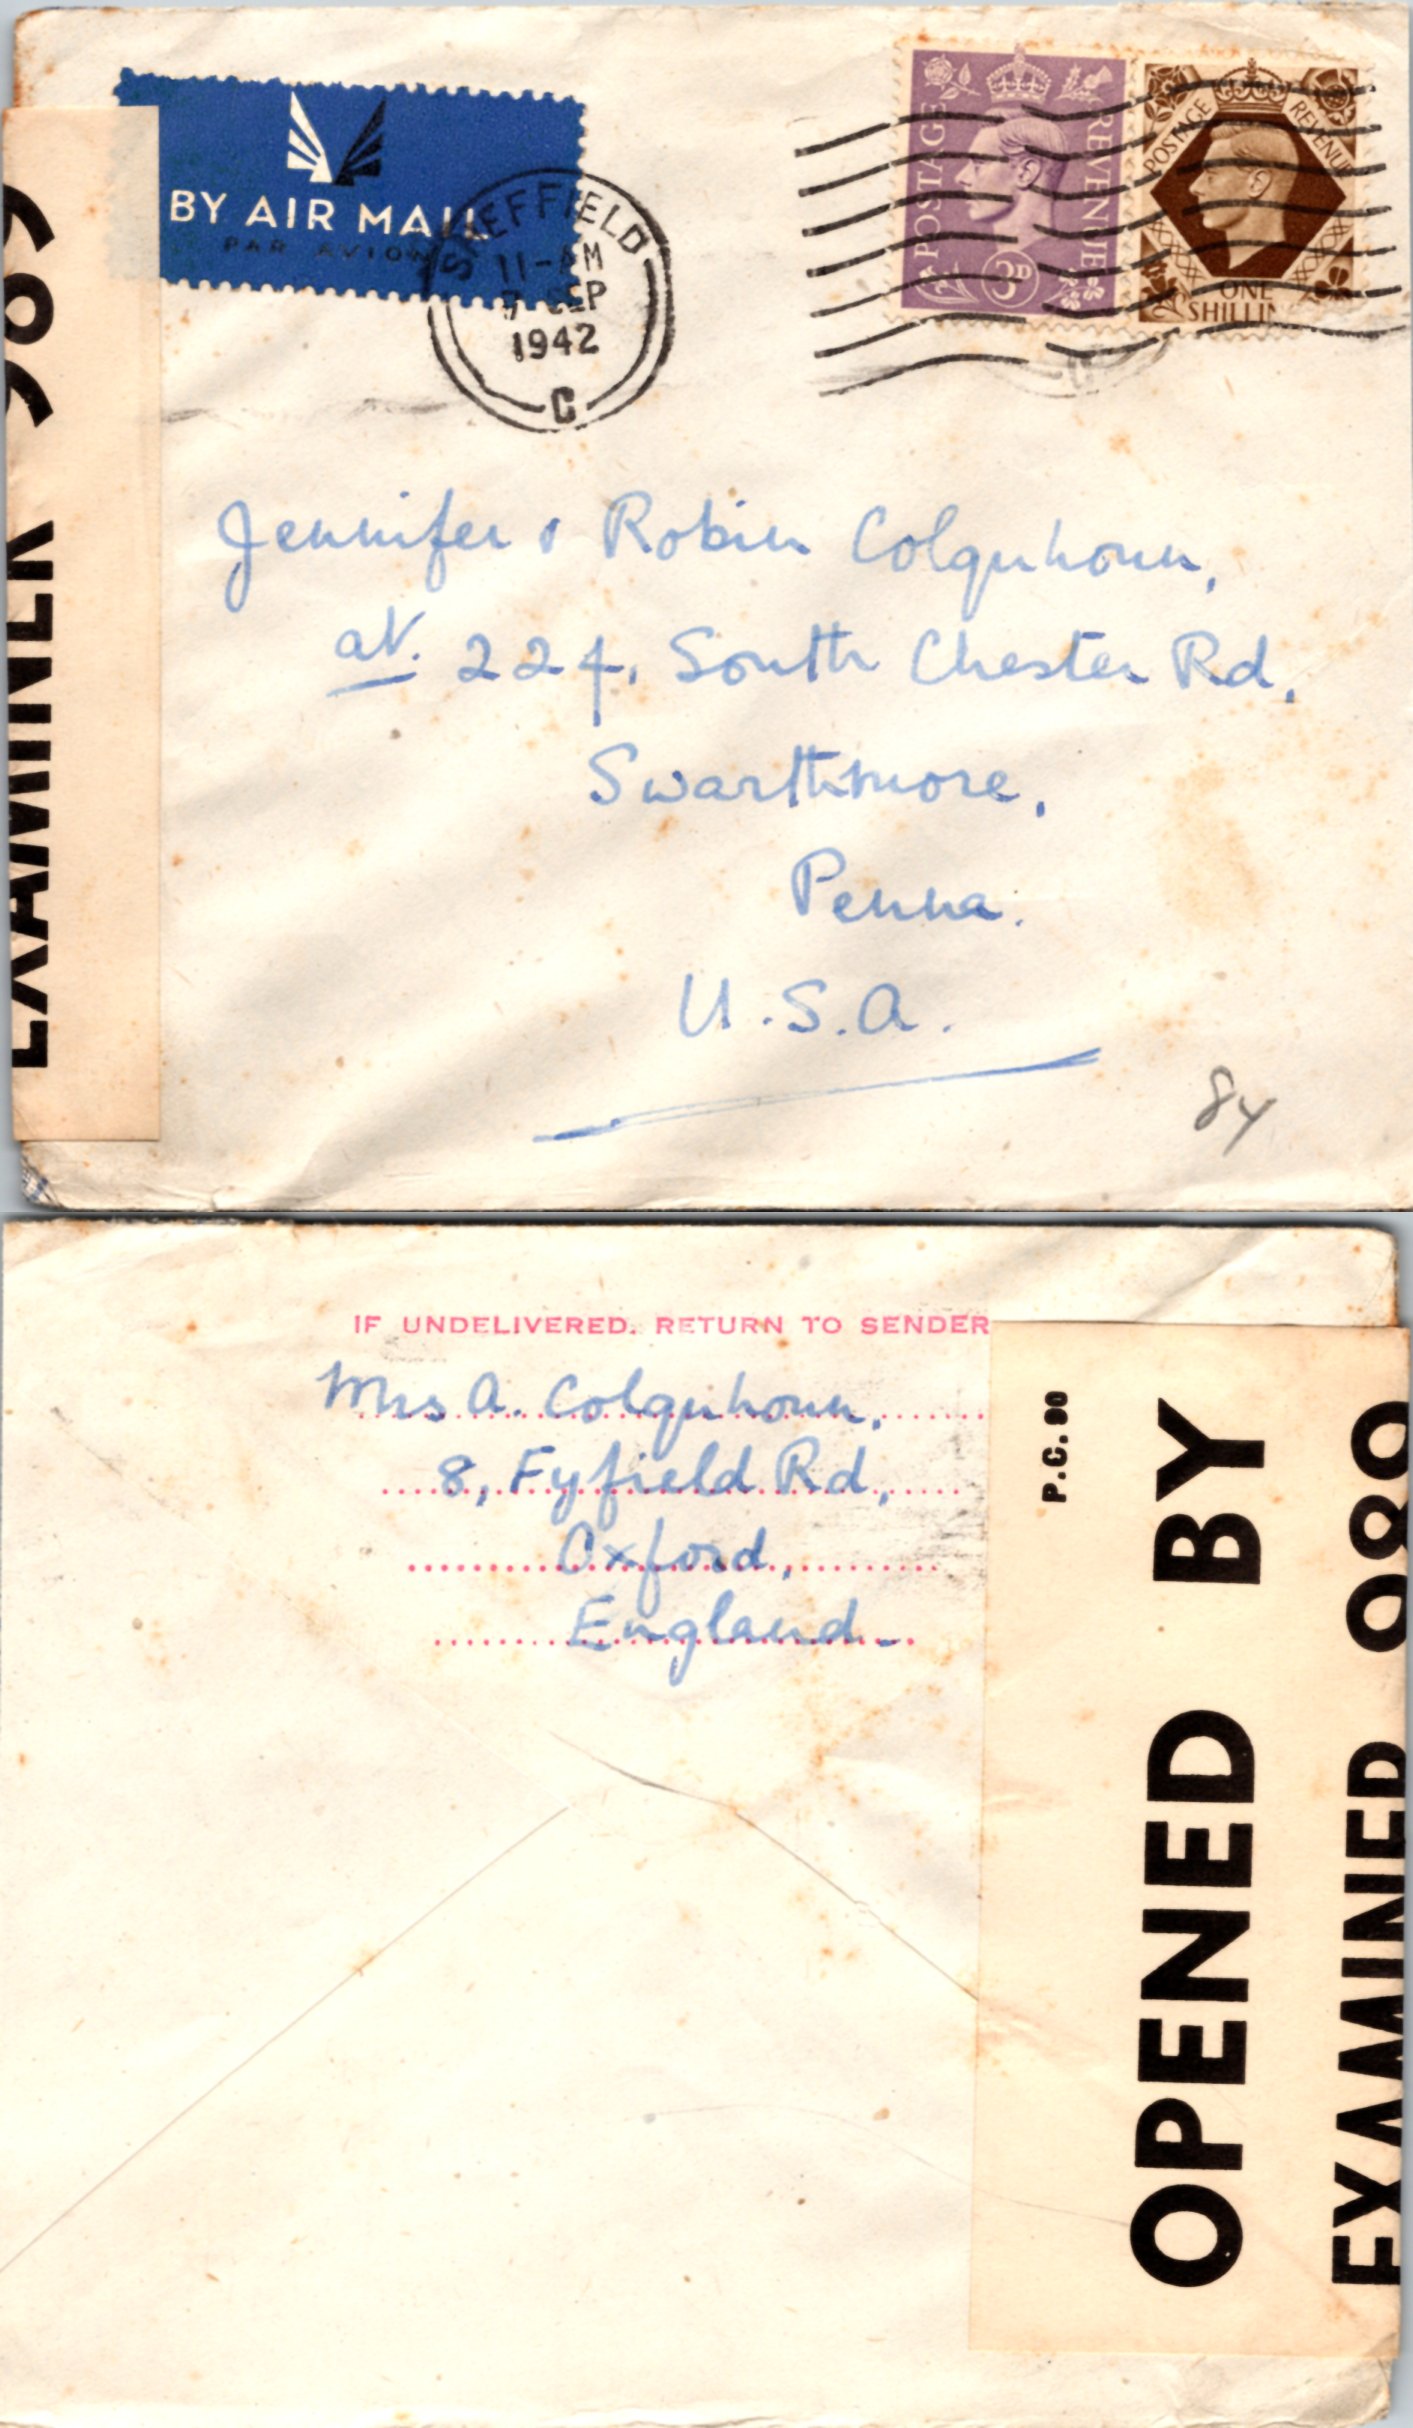 BY AIR MAIL
PAR AVION
SHEFFIELD
11-AM
7 SEP
1942
C
POSTAGE REVENUE
3D
POSTAGE REVENUE
ONE
SHILLING
EXAMINER 989
Jennifer & Robin Colquhoun,
at. 224, South Chester Rd,
Swarthmore,
Penna.
U.S.A.
84
IF UNDELIVERED, RETURN TO SENDER
Mrs A. Colquhoun,
8, Fyfield Rd,
Oxford,
England.
P.C. 90
OPENED BY
EXAMINER 989